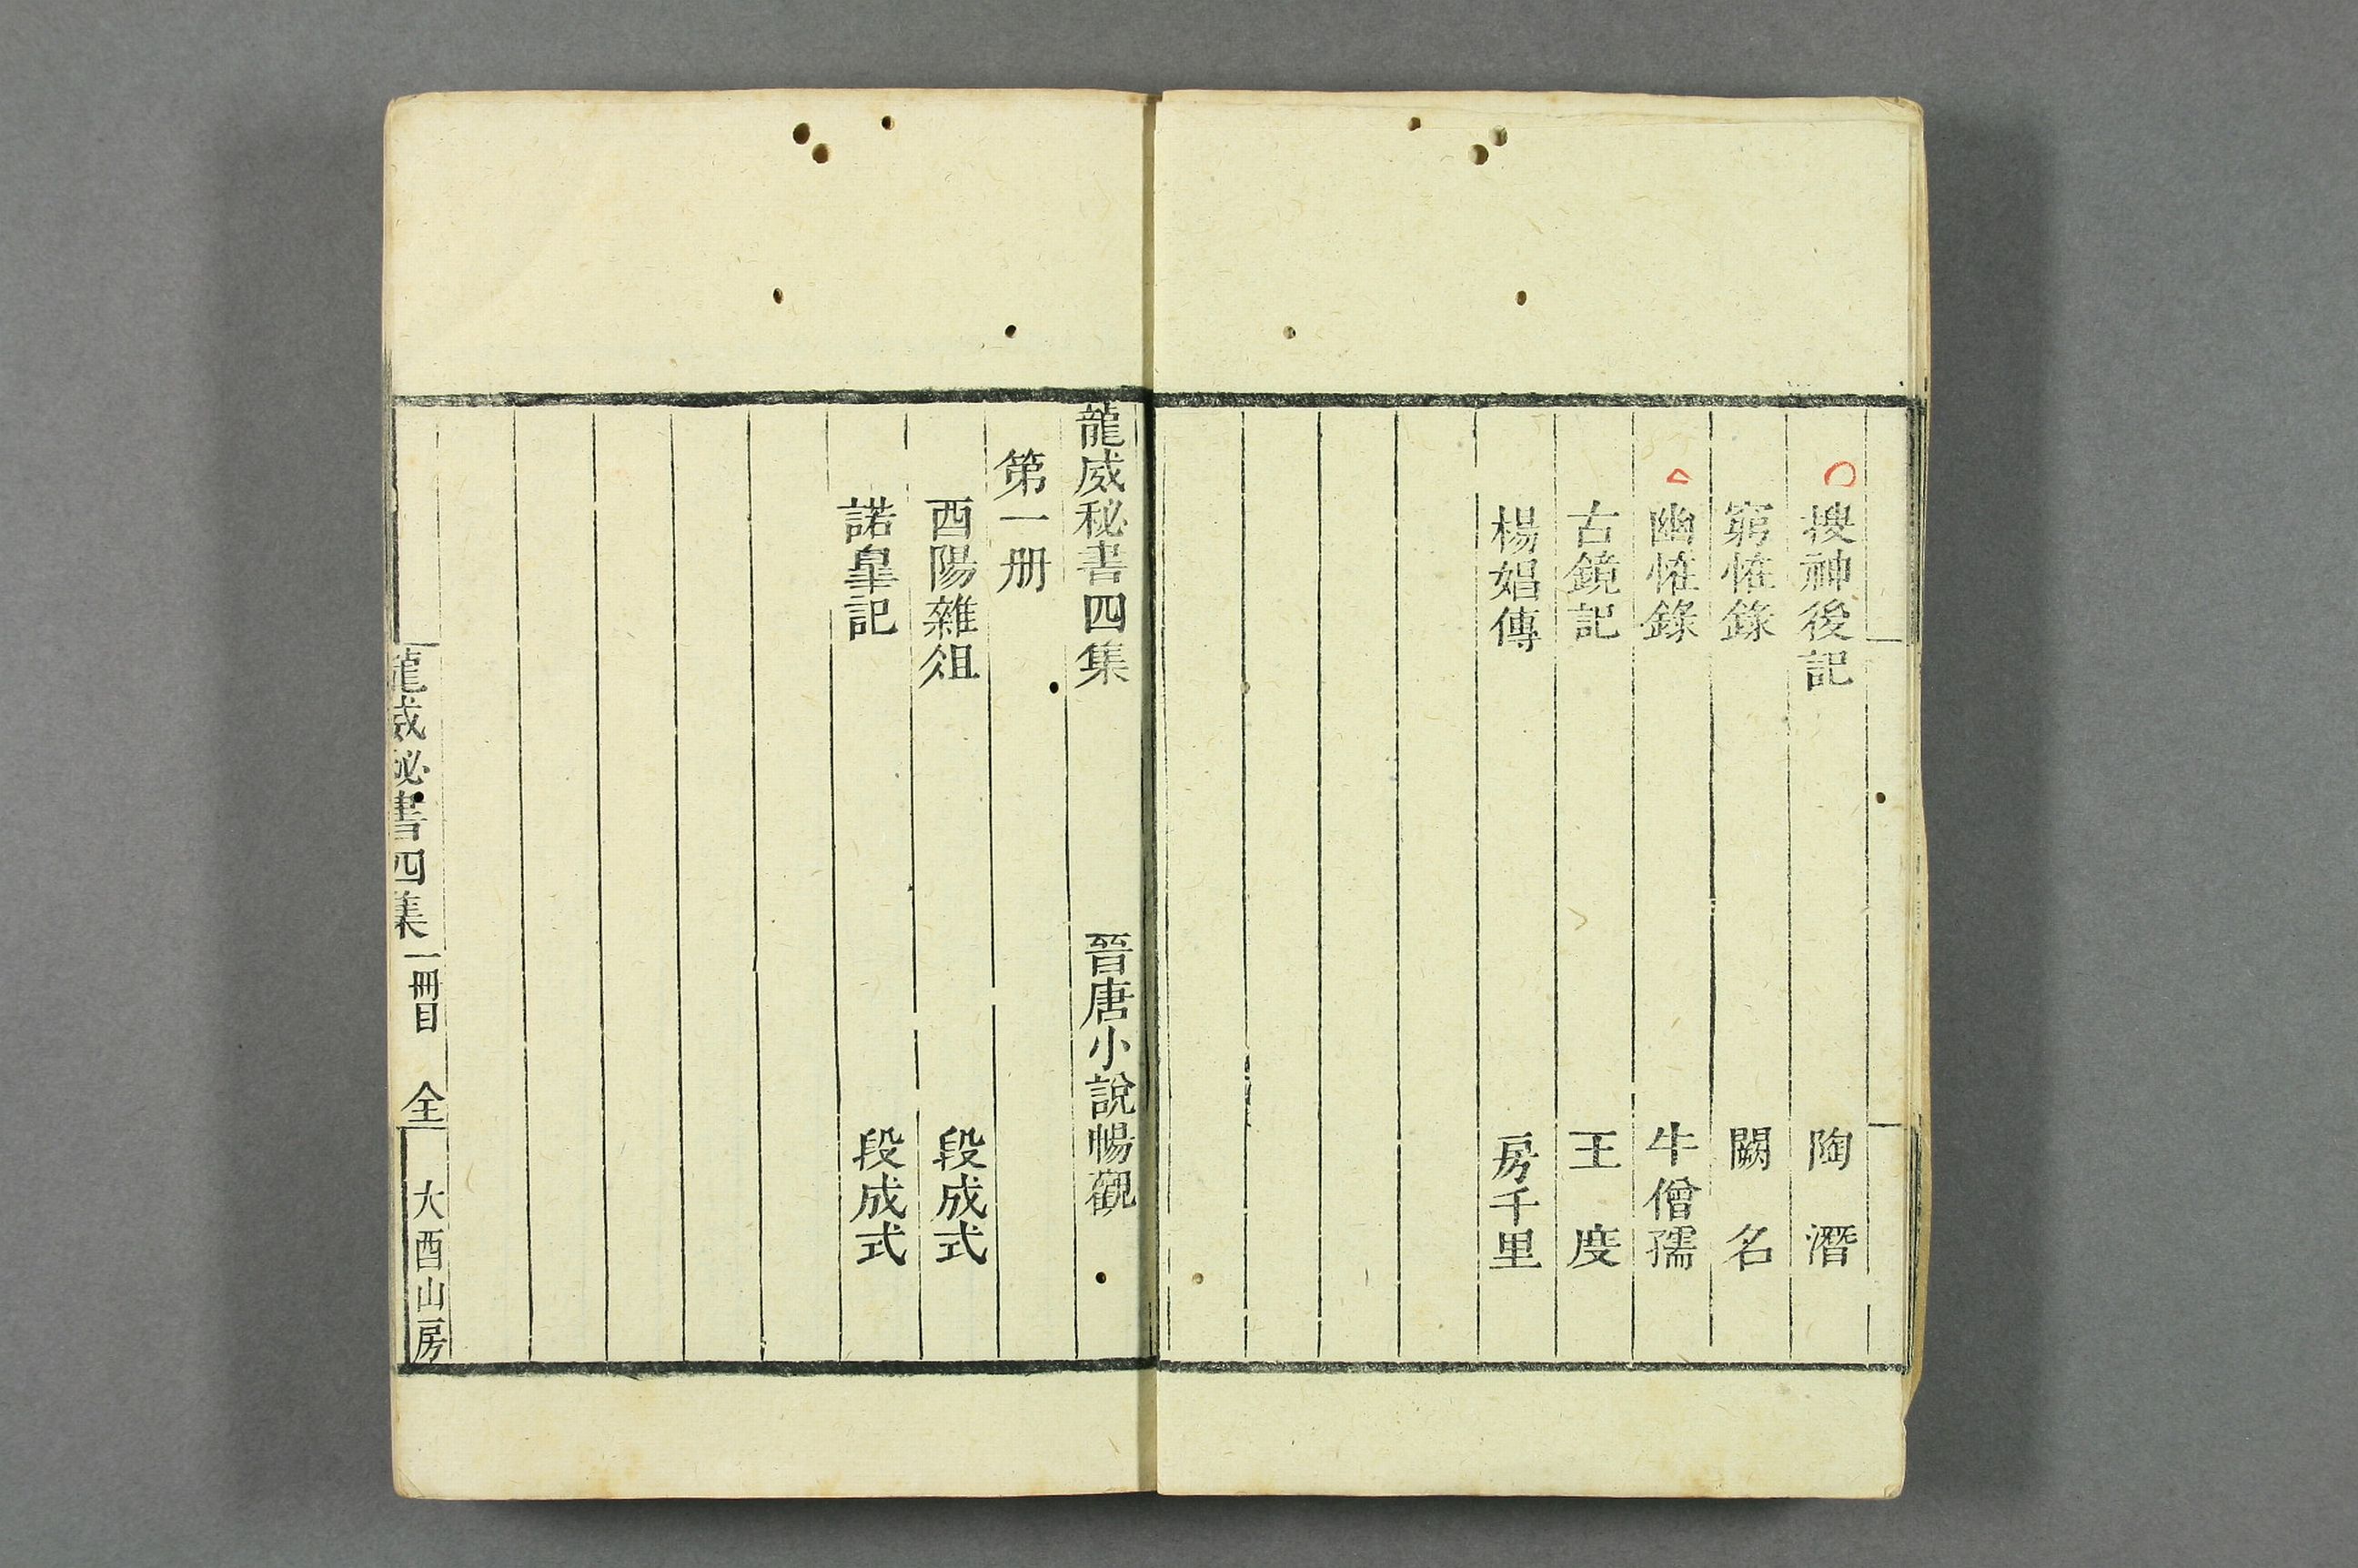 搜神後記 陶潛
窮恠錄 闕名
幽恠錄 牛僧孺
古鏡記 王度
楊娼傳 房千里
龍威秘書四集 晉唐小說暢觀
第一册
酉陽雜俎 段成式
諾臯記 段成式
龍威秘書四集 一冊目 全 大酉山房